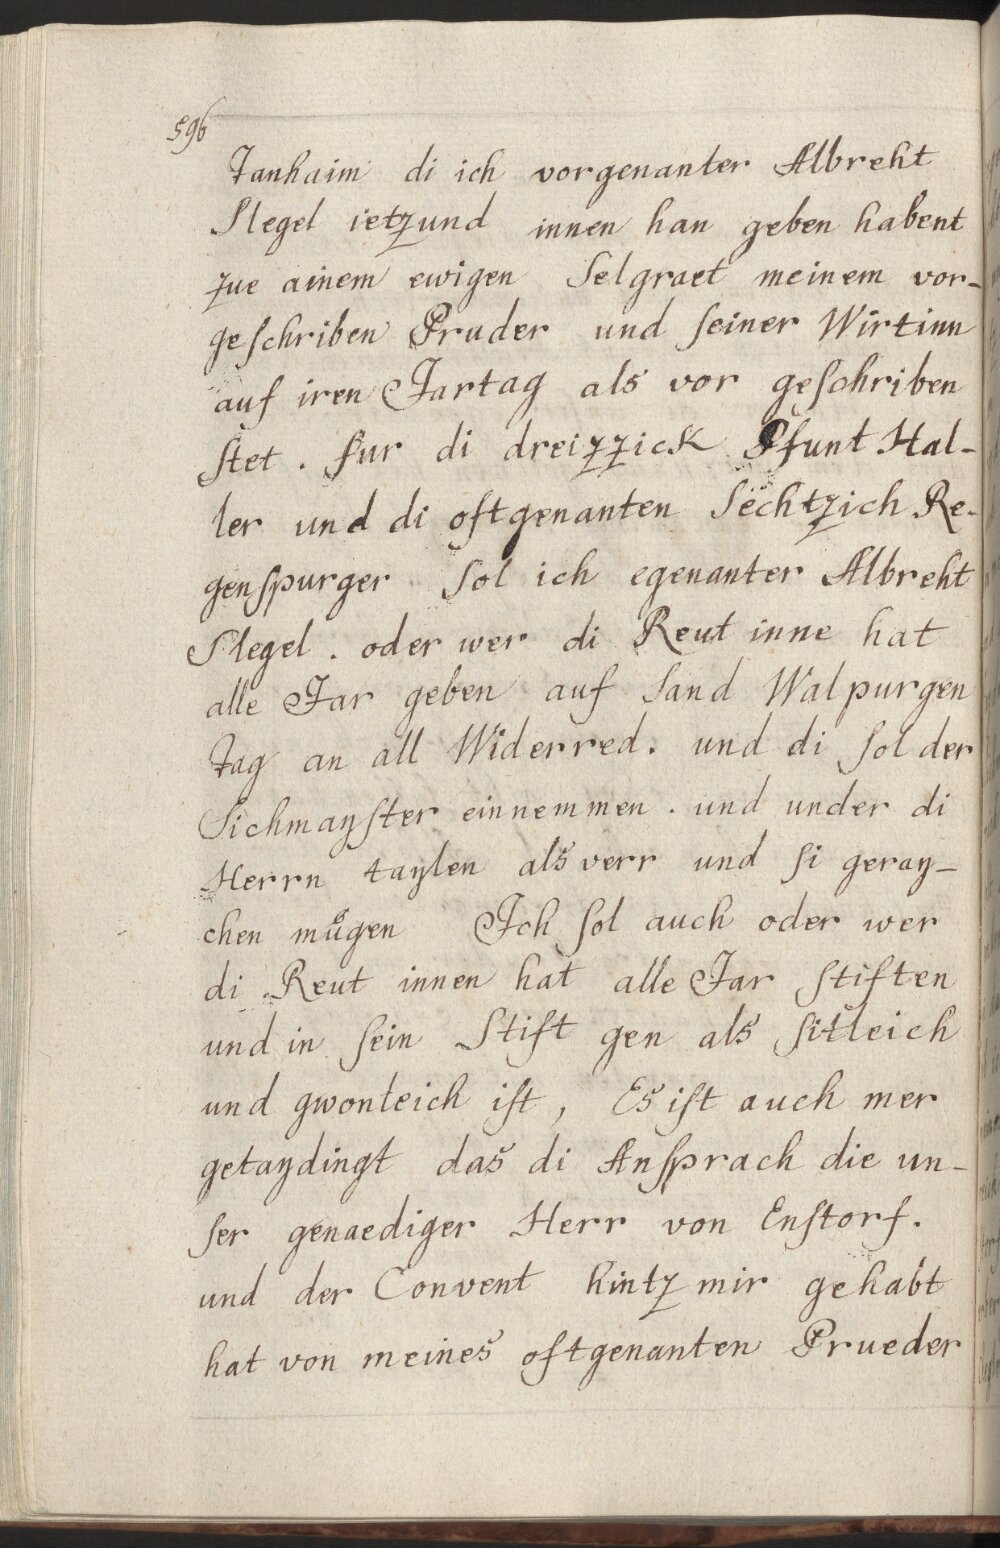 596
Tanhaim di ich vorgenanter Albreht
Slegel ietzund innen han geben habent
zue ainem ewigen Selgraet meinem vor-
geschriben Pruder und seiner Wirtinn
auf iren Jartag als vor geschriben
stet . fur di dreizzick Pfunt Hal-
ler und di oftgenanten Sechtzich Re-
genspurger Sol ich egenanter Albreht
Slegel . oder wer di Reut inne hat
alle Jar geben auf Sand Walpurgen
Tag an all Widerred . und di sol der
Sichmayster einnemmen . und under di
Herrn taylen als verr und si geray-
chen mügen Ich sol auch oder wer
di Reut innen hat alle Jar stiften
und in sein Stift gen als sitleich
und gwonleich ist , Es ist auch mer
getaydingt das di Ansprach die un-
ser genaediger Herr von Enstorf .
und der Convent hintz mir gehabt
hat von meines oftgenanten Prueder